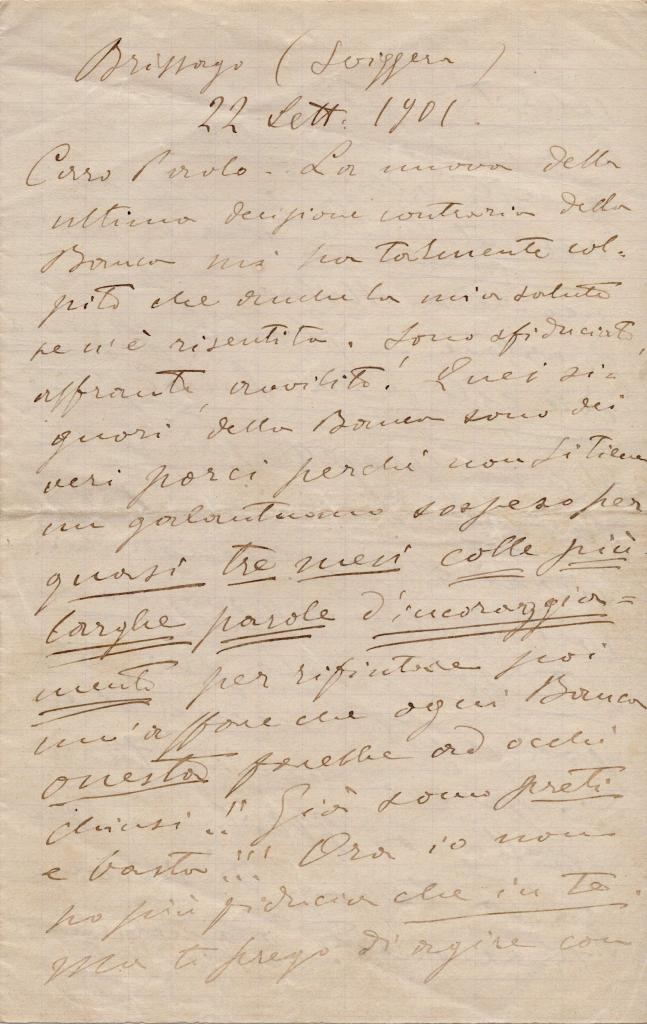 Brissago (Svizzera)
22 Sett. 1901.
Caro Paolo - La nuova della
ultima decisione contraria della
Banca mi ha talmente col-
pito che anche la mia salute
se n'è risentita. Sono sfiduciato,
affranto, avvilito! Quei si-
gnori della Banca sono dei
veri porci perchè non si tiene
un galantuomo sospeso per
quasi tre mesi colle più
larghe parole d'incoraggia=
mento per rifiutare poi
un'affare che ogni Banca
onesta farebbe ad occhi
chiusi!! Già sono preti
e basta!!! Ora io non
ho più fiducia che in te.
Ma ti prego di agire con